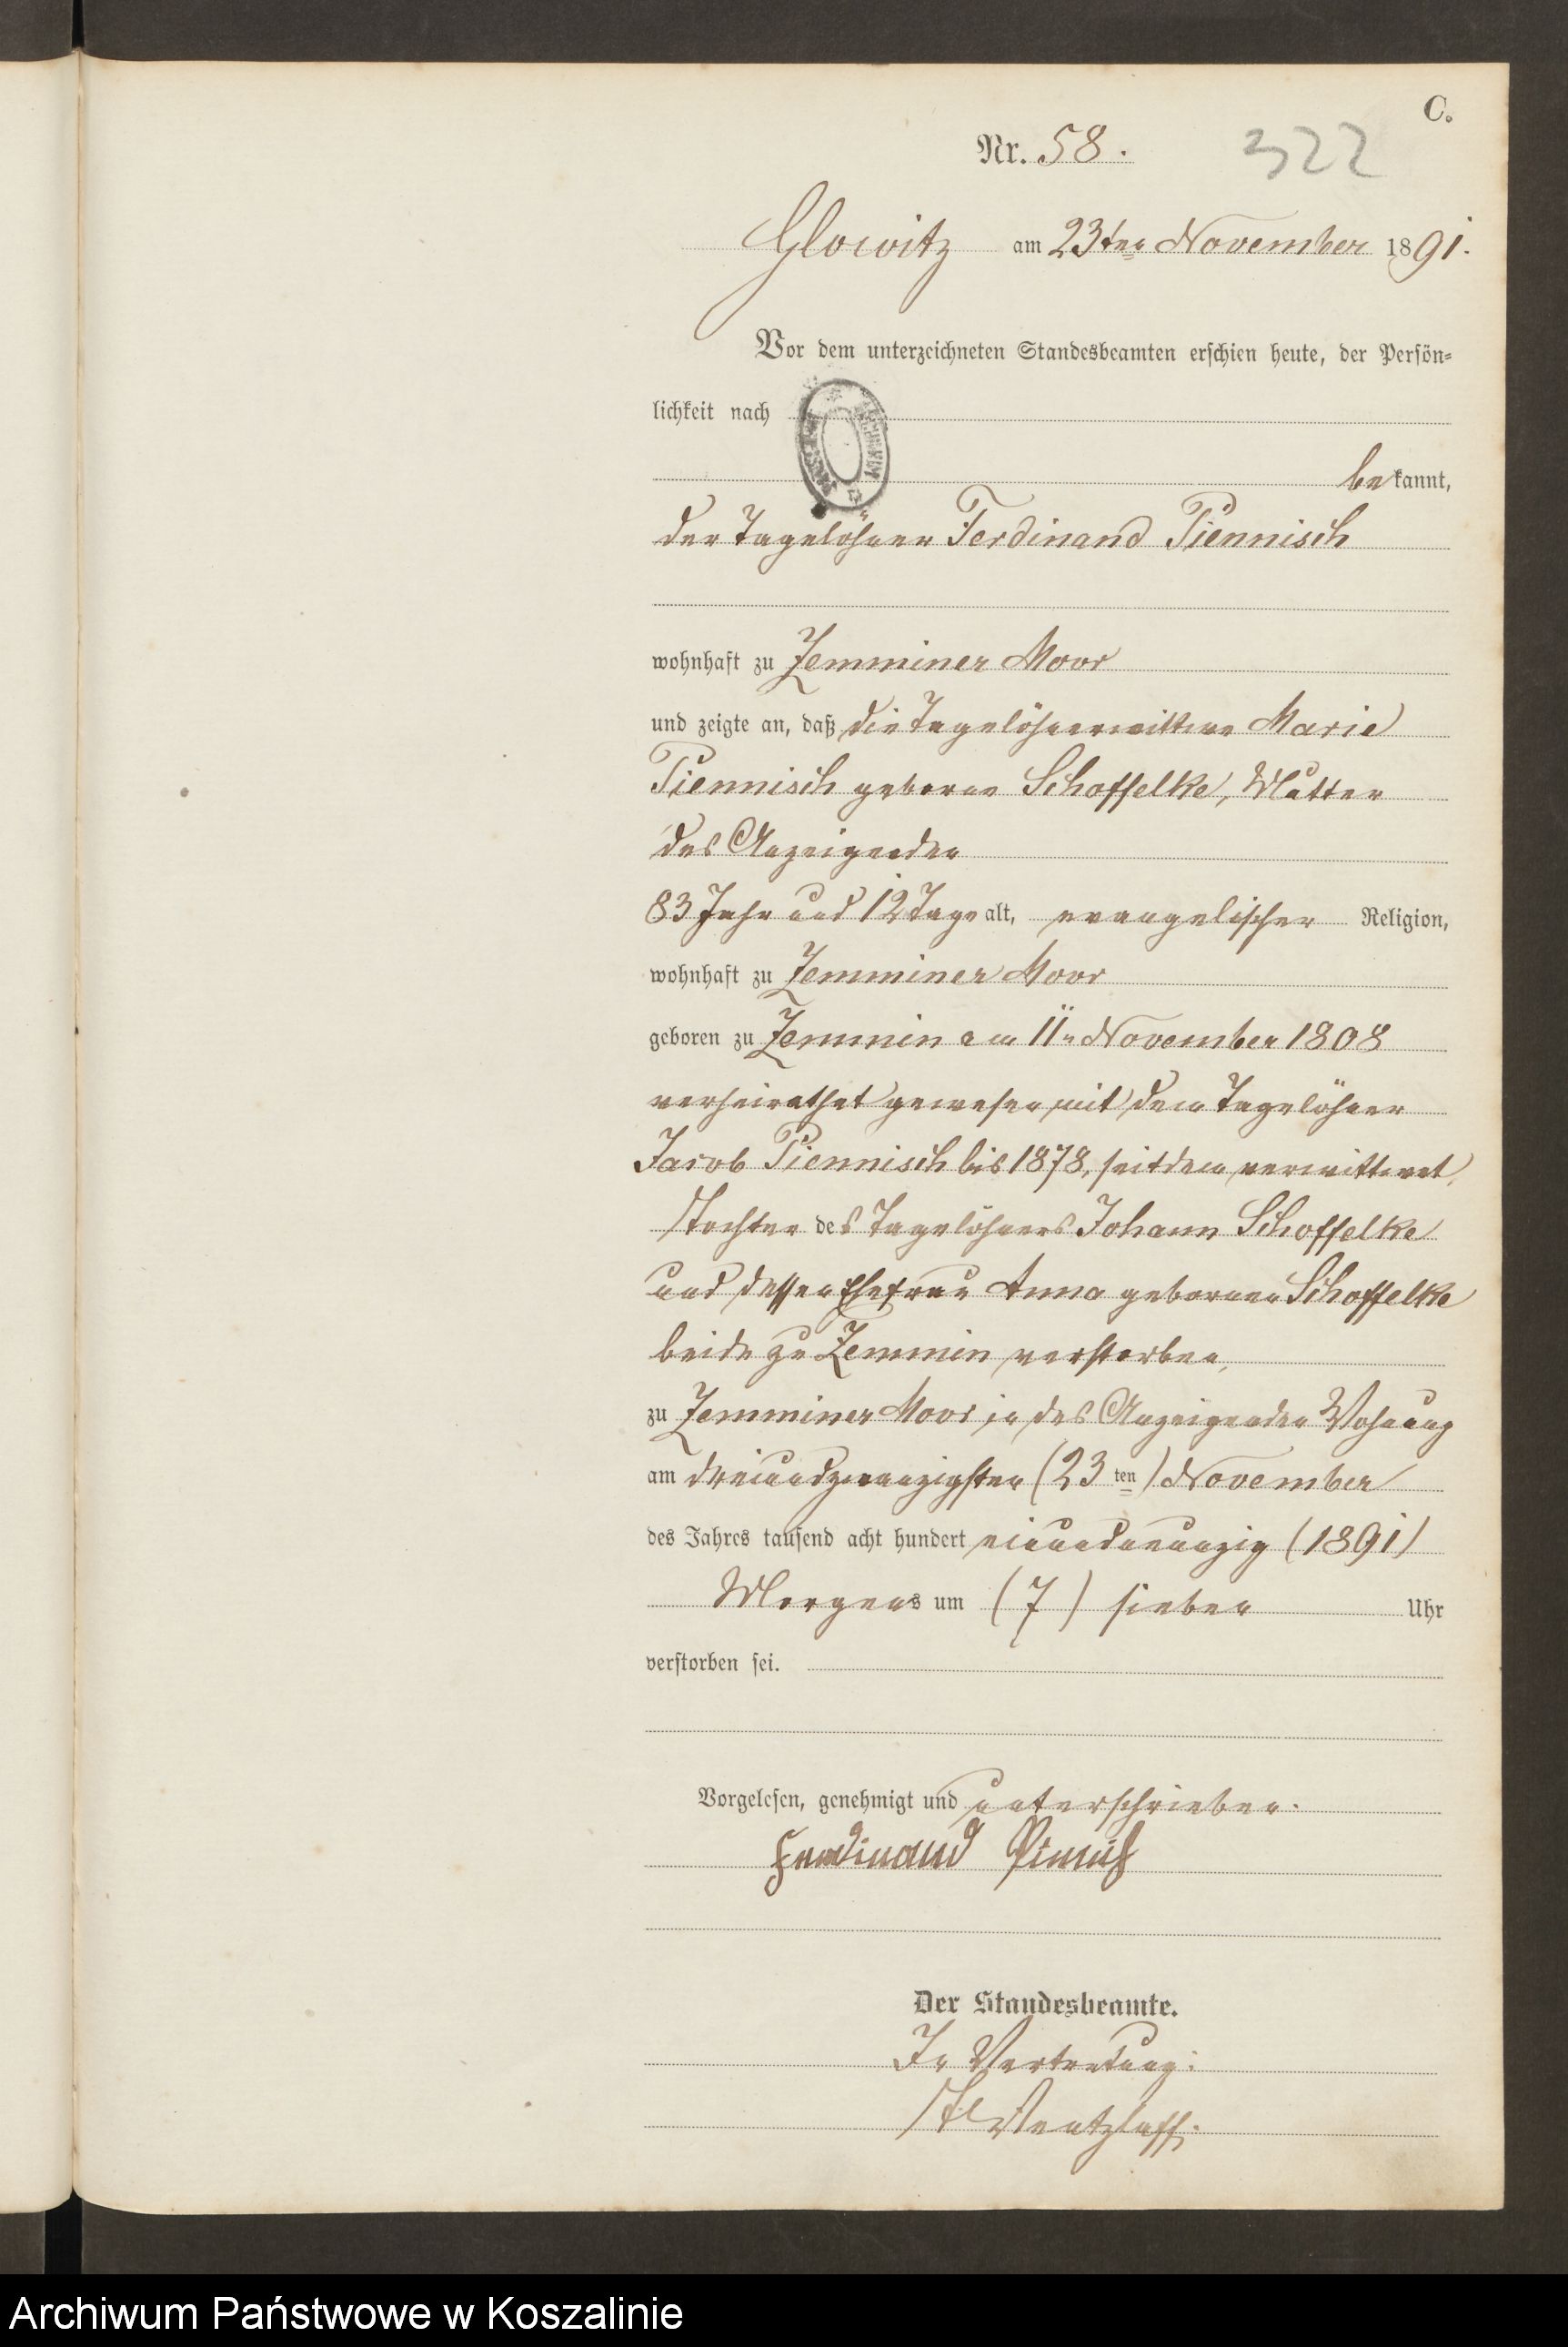 C.
Nr. 58.
322
Glowitz am 23ten November 1891.
Vor dem unterzeichneten Standesbeamten erschien heute, der Persön-
lichkeit nach
bekannt,
der Tagelöhner Ferdinand Piennisch
wohnhaft zu Zemminer Moor
und zeigte an, daß die Tagelöhnerwittwe Marie
Piennisch geborne Schoffelke, Mutter
des Anzeigenden
83 Jahr und 12 Tage alt, evangelischer Religion,
wohnhaft zu Zemminer Moor
geboren zu Zemmin am 11n November 1808
verheirathet gewesen mit dem Tagelöhner
Jacob Piennisch bis 1878, seitdem verwittwet,
Tochter des Tagelöhners Johann Schoffelke
und dessen Ehefrau Anna gebornen Schoffelke
beide zu Zemmin verstorben,
zu Zemminer Moor in des Anzeigenden Wohnung
am dreiundzwanzigsten (23 ten) November
des Jahres tausend acht hundert einundneunzig (1891)
Morgens um (7) sieben Uhr
verstorben sei.
Vorgelesen, genehmigt und unterschrieben.
Ferdinand
Der Standesbeamte.
In Vertretung:
Wentzlaff.
Archiwum Państwowe w Koszalinie